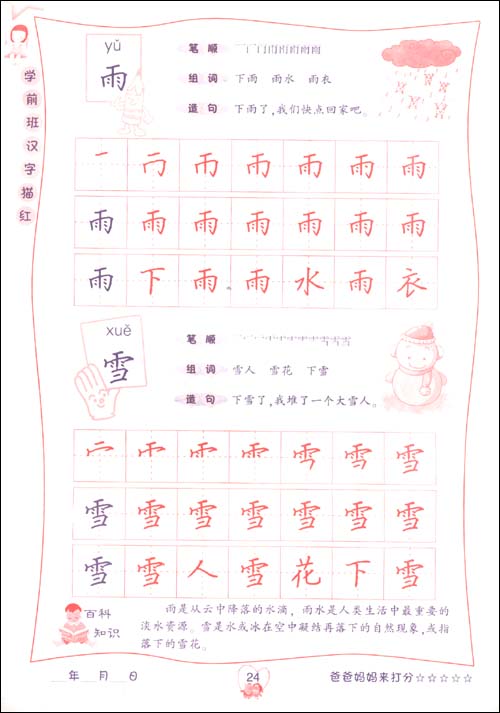 学前班汉字描红
yǔ
雨
笔顺
组词 下雨 雨水 雨衣
造句 下雨了,我们快点回家吧。
雨 雨 雨 雨
雨 雨 雨 雨 雨 雨 雨
雨 下 雨 雨 水 雨 衣
xuě
雪
笔顺
组词 雪人 雪花 下雪
造句 下雪了,我堆了一个大雪人。
雪 雪
雪 雪 雪 雪 雪 雪 雪
雪 雪 人 雪 花 下 雪
百科知识
雨是从云中降落的水滴,雨水是人类生活中最重要的
淡水资源。雪是水或冰在空中凝结再落下的自然现象,或指
落下的雪花。
年 月 日
24
爸爸妈妈来打分☆☆☆☆☆